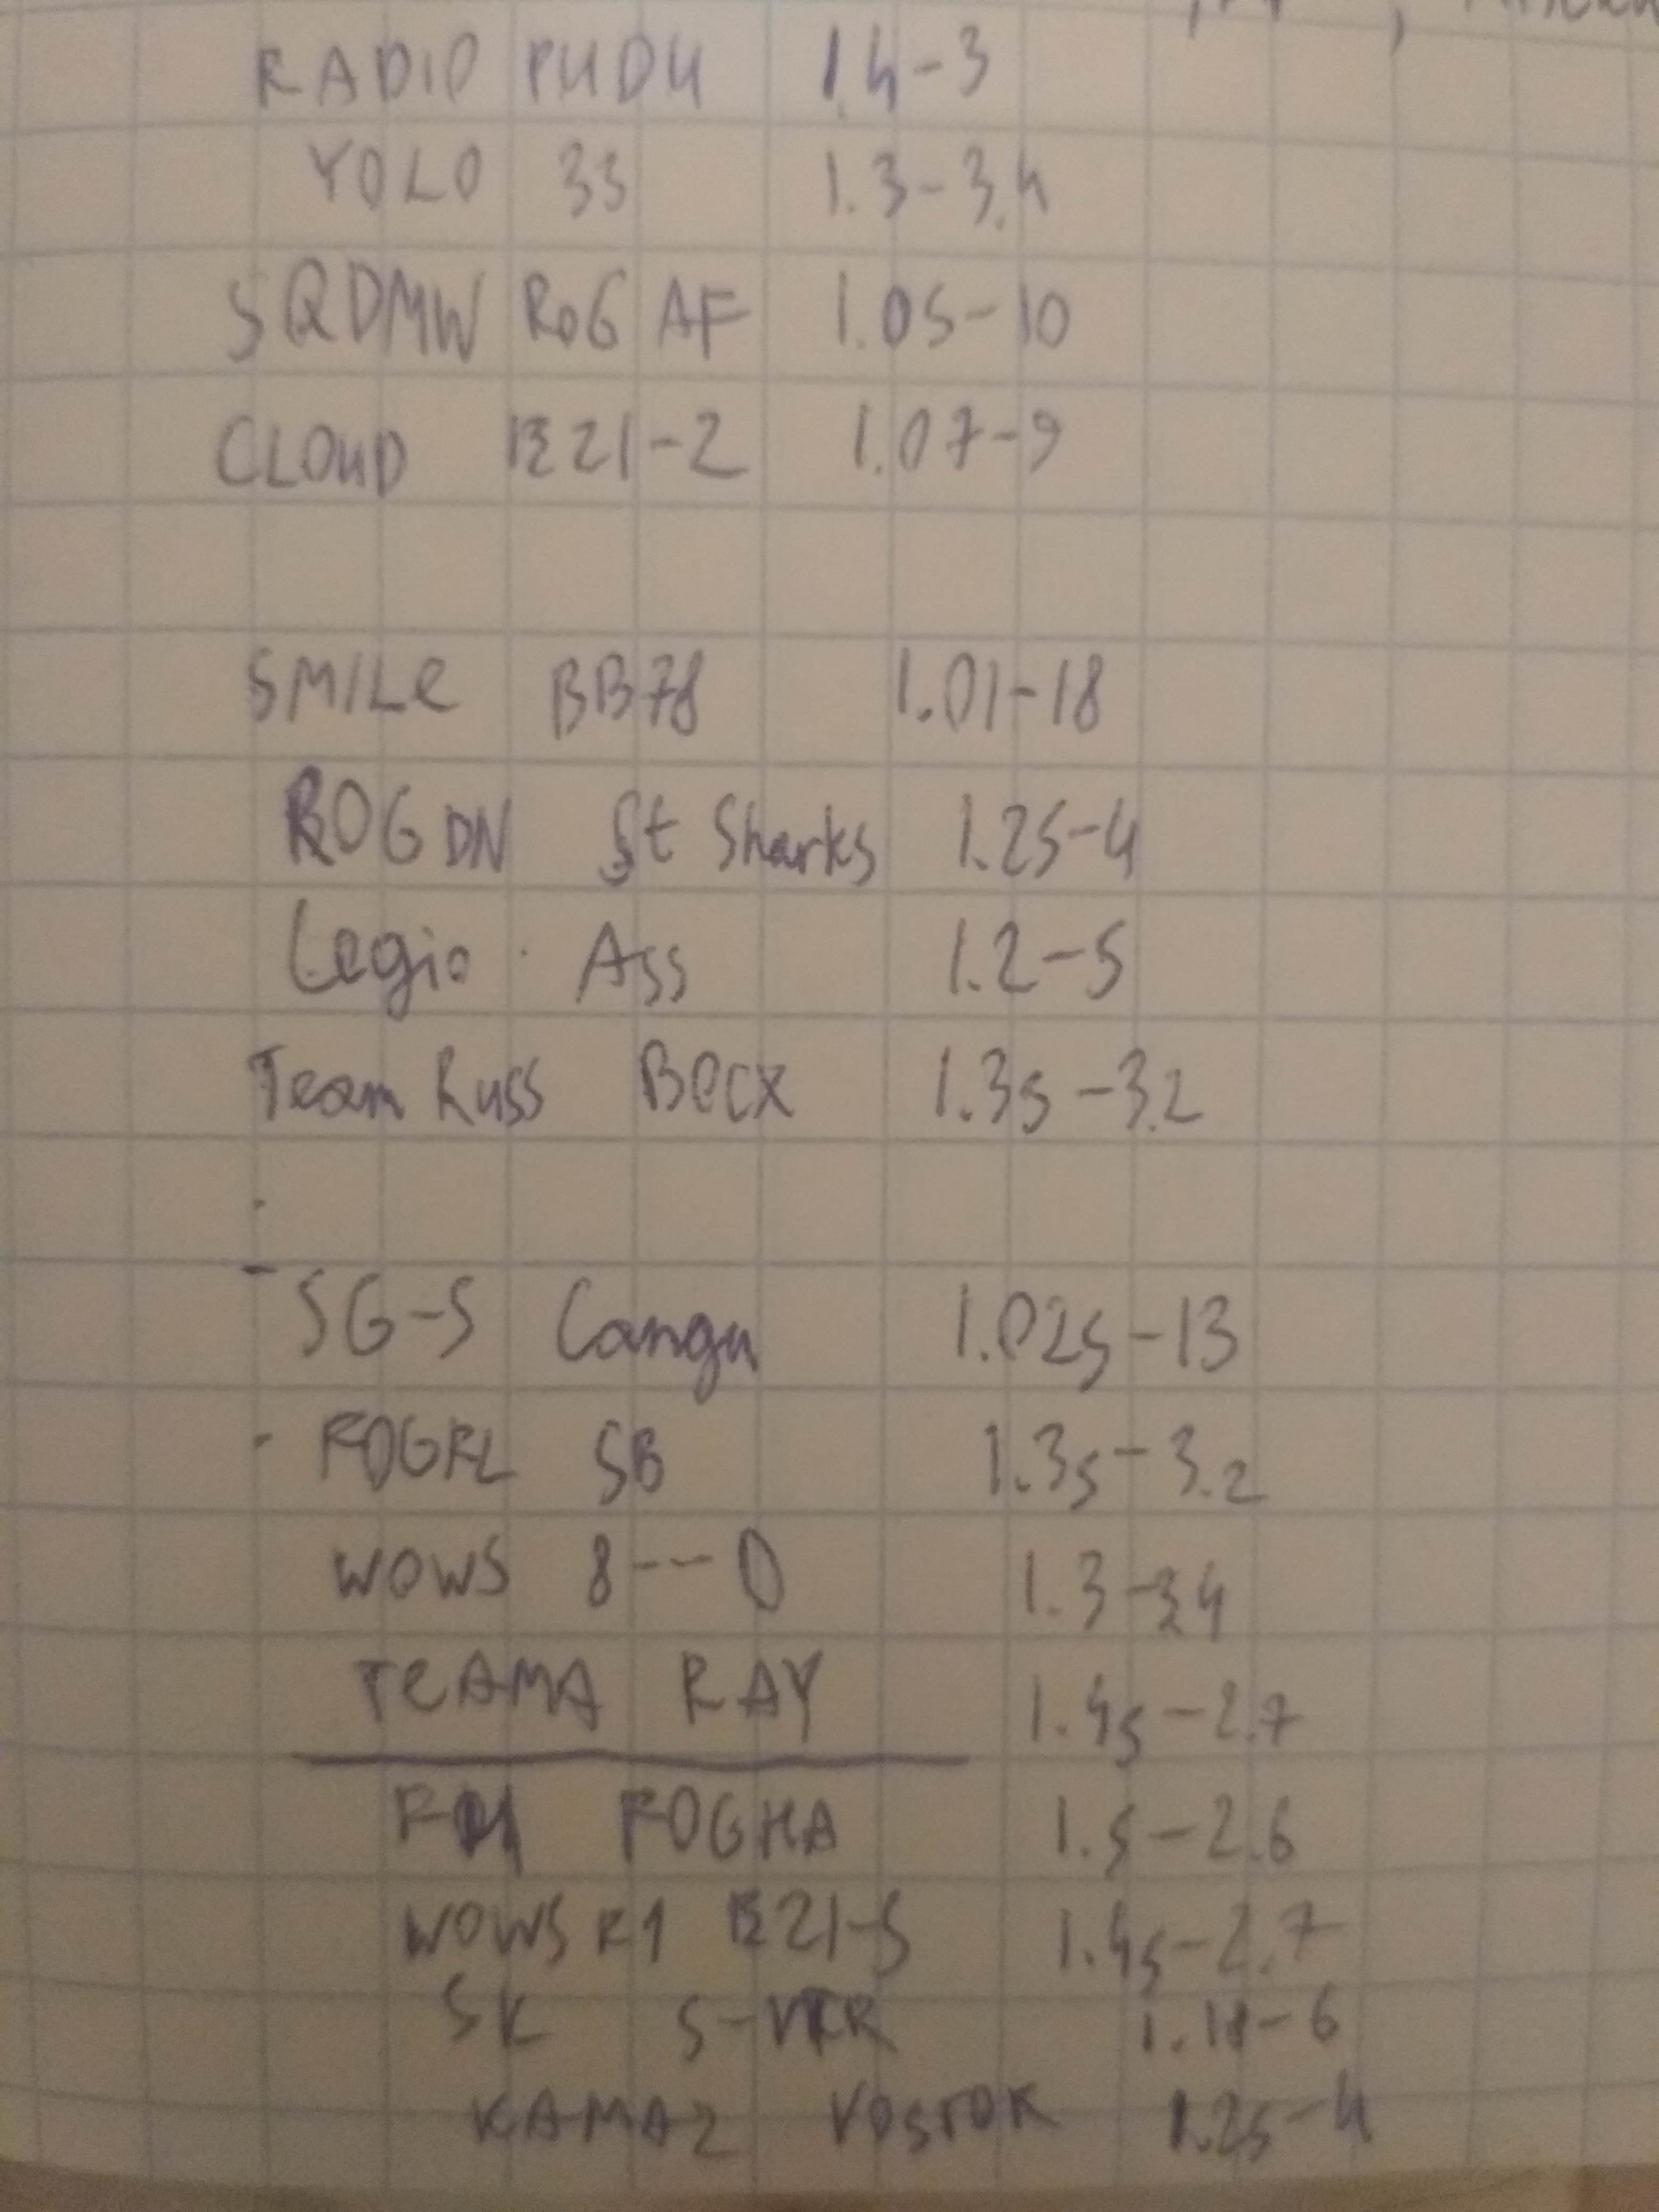 RADIO PUDU 1.4-3
YOLO 33 1.3-3.4
SQDMW RoG AF 1.05-10
CLOUD E21-2 1.07-9
SMILe BB78 1.01-18
ROG DN St Sharks 1.25-4
Legio Ass 1.2-5
Team Russ BOCX 1.35-3.2
SG-S Cangu 1.025-13
ROGRL SB 1.35-3.2
WOWS 8---D 1.3-3.4
TeAMA RAY 1.45-2.7
ROGHA 1.5-2.6
WOWS R1 E21-5 1.45-2.7
SK 6
KAMAZ VOSTOK 1.25-4